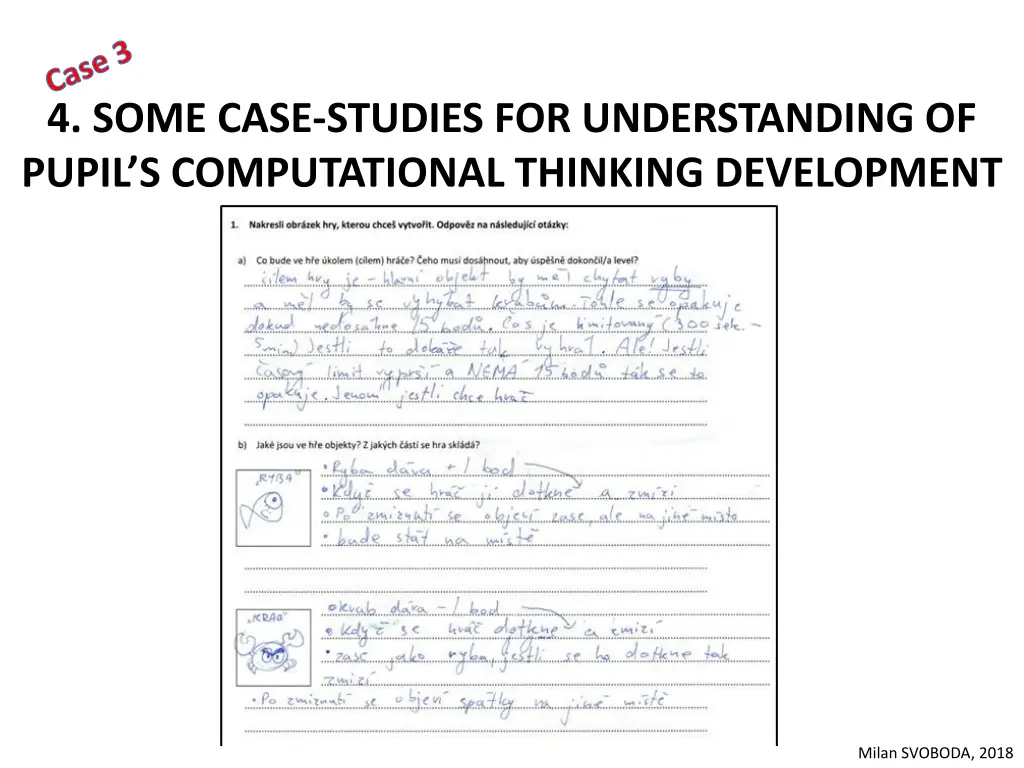 Case 3
4. SOME CASE-STUDIES FOR UNDERSTANDING OF
PUPIL’S COMPUTATIONAL THINKING DEVELOPMENT
1. Nakresli obrázek hry, kterou chceš vytvořit. Odpověz na následující otázky:
a) Co bude ve hře úkolem (cílem) hráče? Čeho musí dosáhnout, aby úspěšně dokončil/a level?
cílem hry je - hlavní objekt by měl chytat ryby
a měl by se vyhybat krabům. Tohle se opakuje
dokud nedosáhne 15 bodů. Čas je limitovaný (300 sek. -
5min) Jestli to dokáže tak vyhrál. Ale! Jestli
časový limit vyprší a NEMÁ 15 bodů tak se to
opakuje. Jenom jestli chce hráč
b) Jaké jsou ve hře objekty? Z jakých částí se hra skládá?
„RYBA“
• Ryba dává + 1 bod
• Když se hráč jí dotkne a zmizí
• Po zmiznutí se objeví zase, ale na jiné místo
• bude stát na místě
„KRAB“
• krab dává - 1 bod
• Když se hráč dotkne a zmizí
• zase jako ryba, jestli se ho dotkne tak
zmizí
• Po zmiznutí se objeví spátky na jiné místě
Milan SVOBODA, 2018